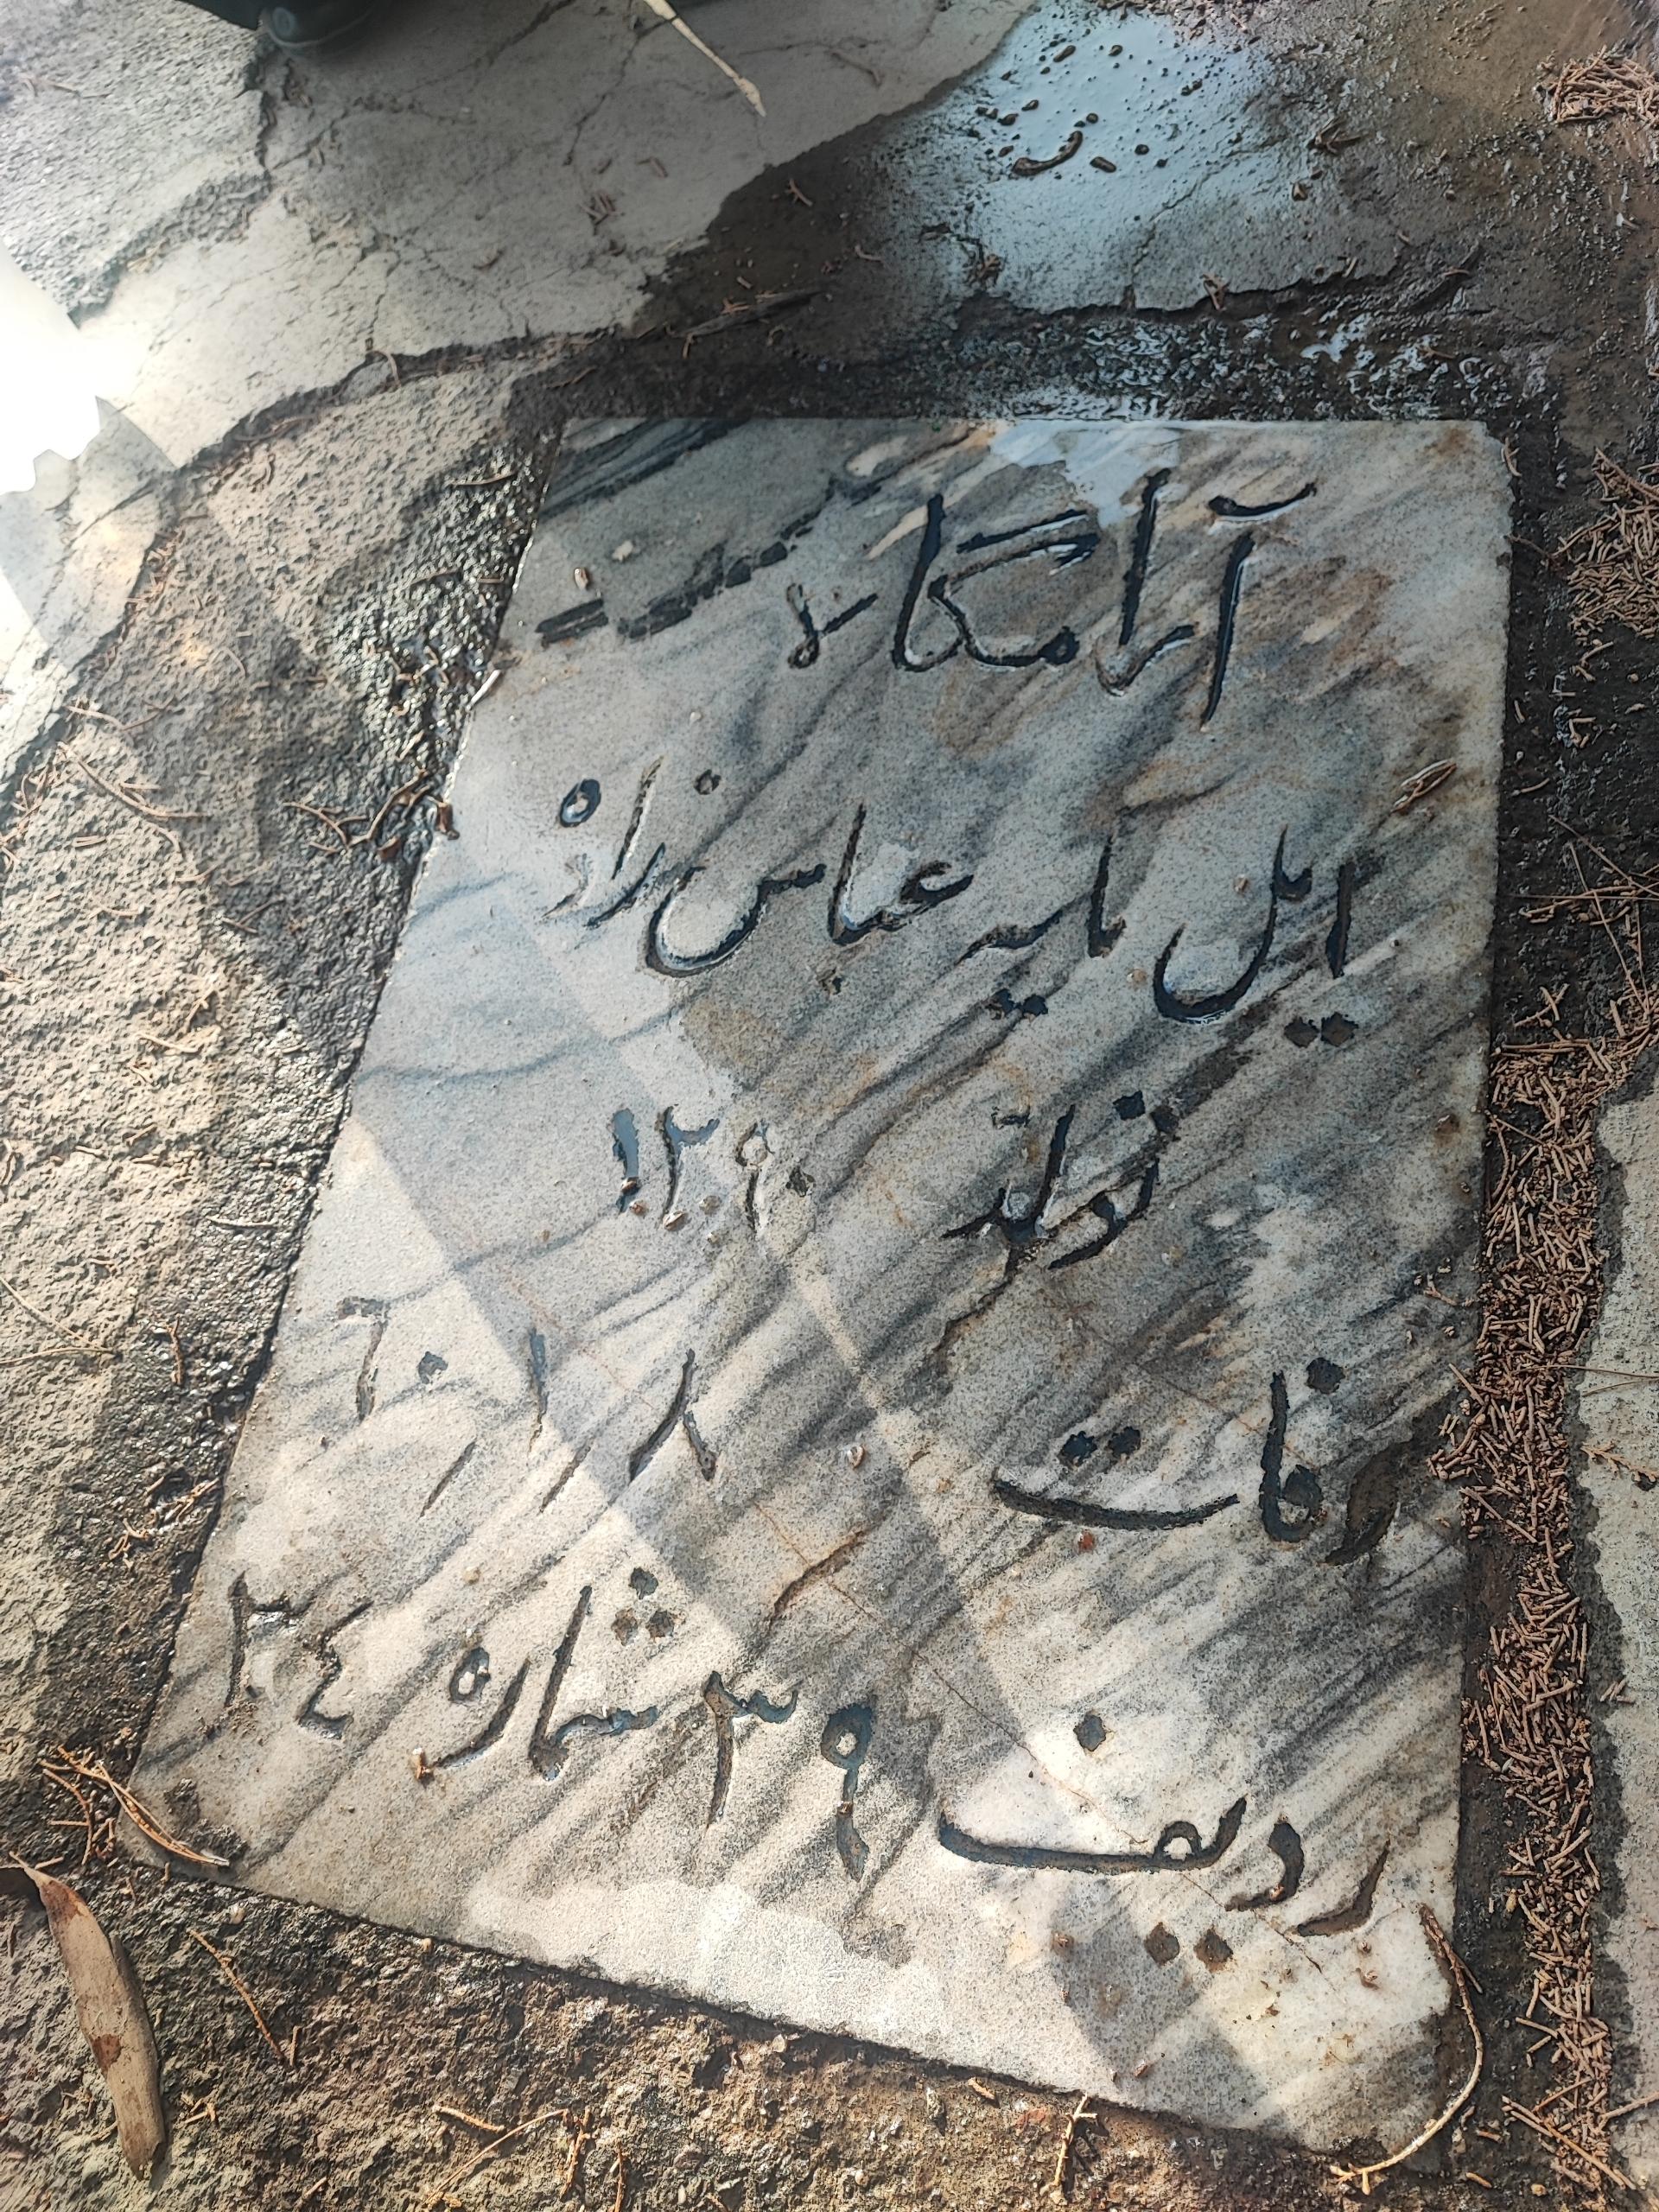 آرامگاه
ایل عباس زاده
تولد ۱۲۹۰
وفات ٦۰/۱/۸
ردیف ۳۹ شماره ۲٤